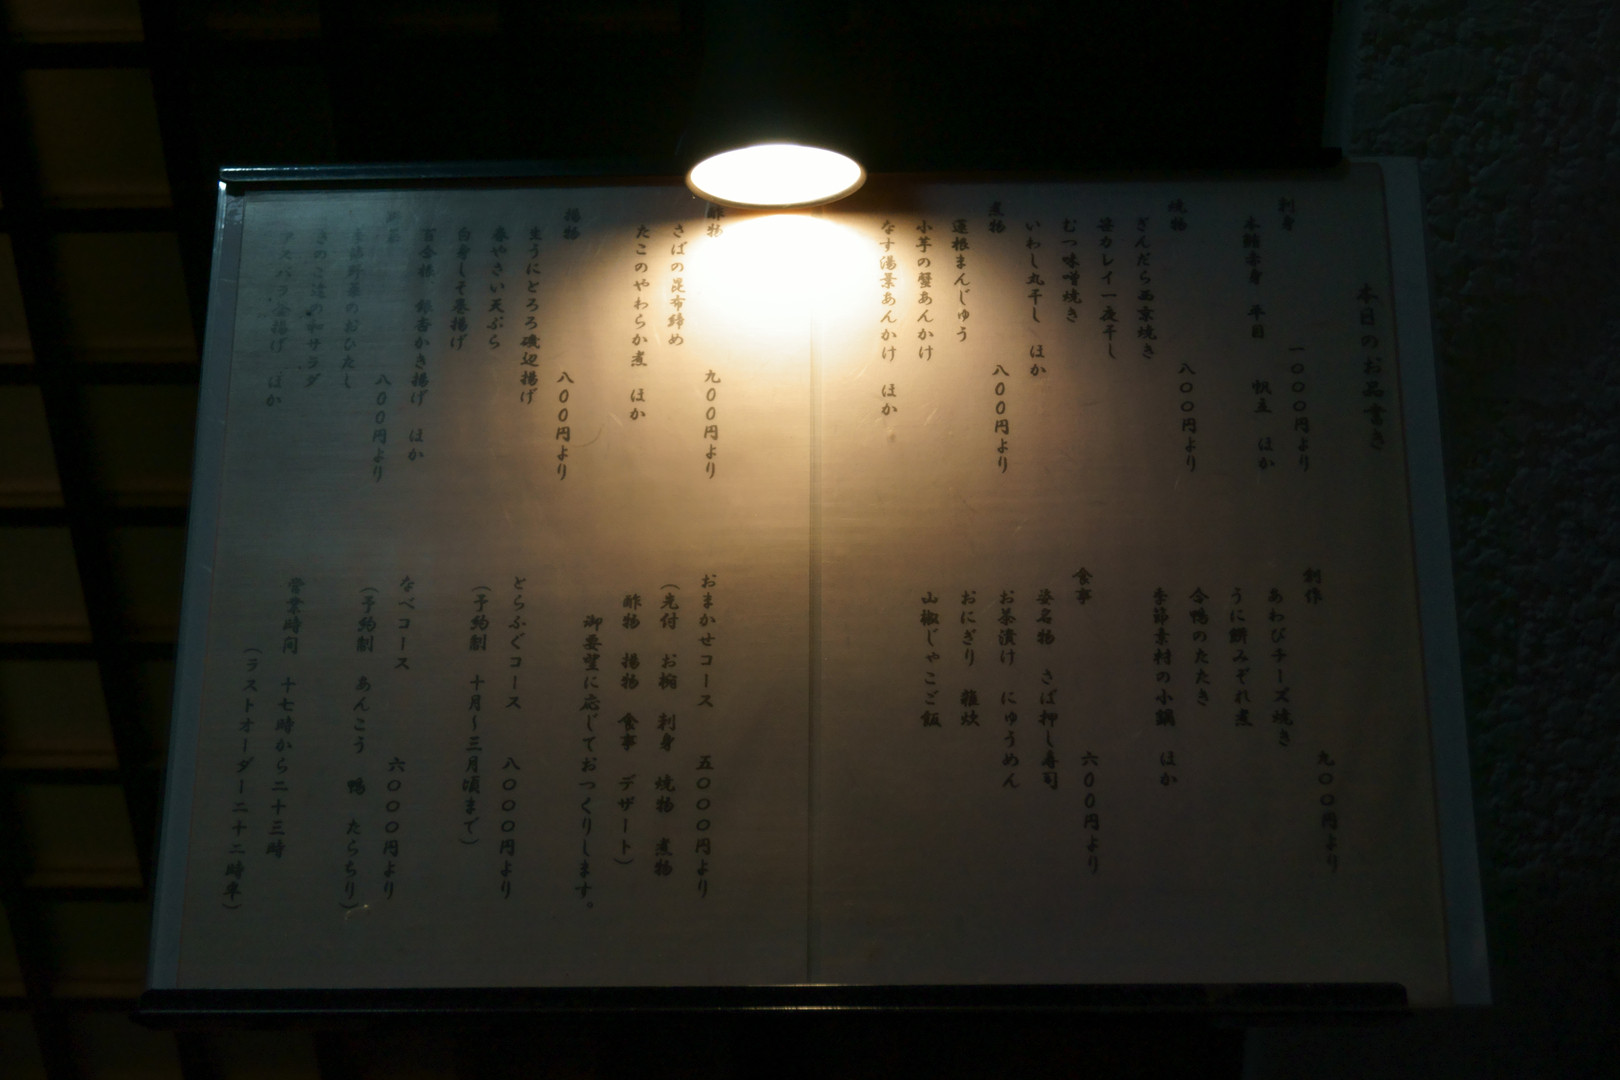 本日のお品書き
刺身
一〇〇〇円より
本鮪赤身 平目 帆立 ほか
焼物
八〇〇円より
ぎんだら西京焼き
笹カレイ一夜干し
むつ味噌焼き
いわし丸干し ほか
煮物
八〇〇円より
蓮根まんじゅう
小芋の蟹あんかけ
なす湯葉あんかけ ほか
創作
九〇〇円より
あわびチーズ焼き
うに餅みぞれ煮
合鴨のたたき
季節素材の小鍋 ほか
食事
六〇〇円より
名物 さば押し寿司
お茶漬け にゅうめん
おにぎり 雑炊
山椒じゃこご飯
酢物
九〇〇円より
さばの昆布締め
たこのやわらか煮 ほか
揚物
八〇〇円より
生うにとろろ磯辺揚げ
春やさい天ぷら
白身しそ巻揚げ
百合根 銀杏かき揚げ ほか
八〇〇円より
野菜のおひたし
きのこ達の和サラダ
アスパラ揚げ ほか
おまかせコース
五〇〇〇円より
(先付 お椀 刺身 焼物 煮物
酢物 揚物 食事 デザート)
御要望に応じておつくりします。
とらふぐコース
八〇〇〇円より
(予約制 十月~三月頃まで)
なべコース
六〇〇〇円より
(予約制 あんこう 鴨 たらちり)
営業時間 十七時から二十三時
(ラストオーダー二十二時半)